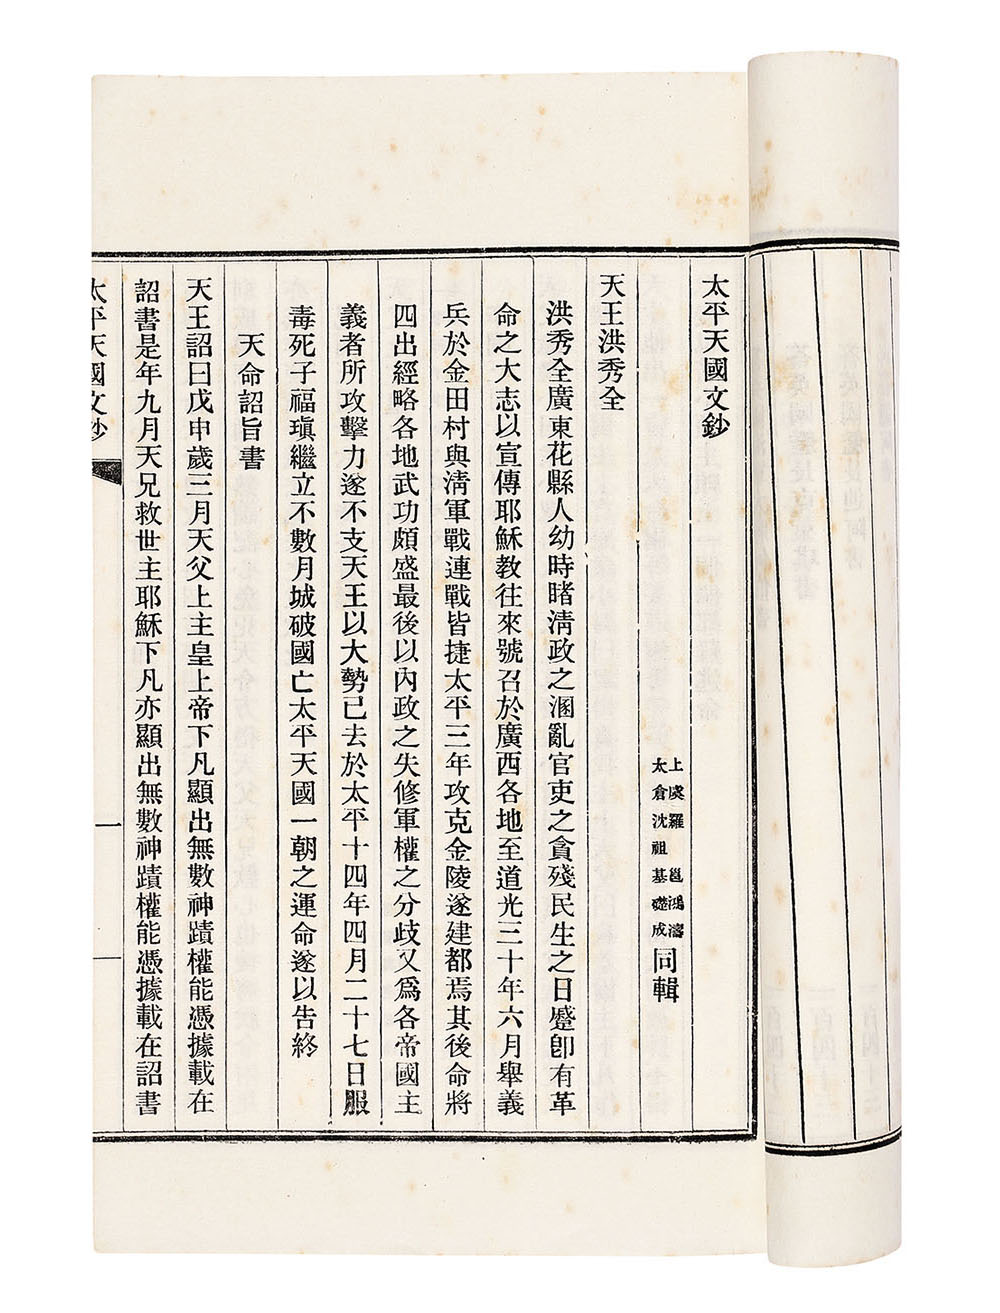 太平天國文鈔
上虞羅邕鴻濤
太倉沈祖基礎成
同輯
天王洪秀全
洪秀全廣東花縣人幼時睹淸政之溷亂官吏之貪殘民生之日蹙卽有革
命之大志以宣傳耶穌敎往來號召於廣西各地至道光三十年六月舉義
兵於金田村與淸軍戰連戰皆捷太平三年攻克金陵遂建都焉其後命將
四出經略各地武功頗盛最後以內政之失修軍權之分歧又爲各帝國主
義者所攻擊力遂不支天王以大勢已去於太平十四年四月二十七日服
毒死子福瑱繼立不數月城破國亡太平天國一朝之運命遂以告終
天命詔旨書
天王詔曰戊申歲三月天父上主皇上帝下凡顯出無數神蹟權能憑據載在
詔書是年九月天兄救世主耶穌下凡亦顯出無數神蹟權能憑據載在詔書
太平天國文鈔 一